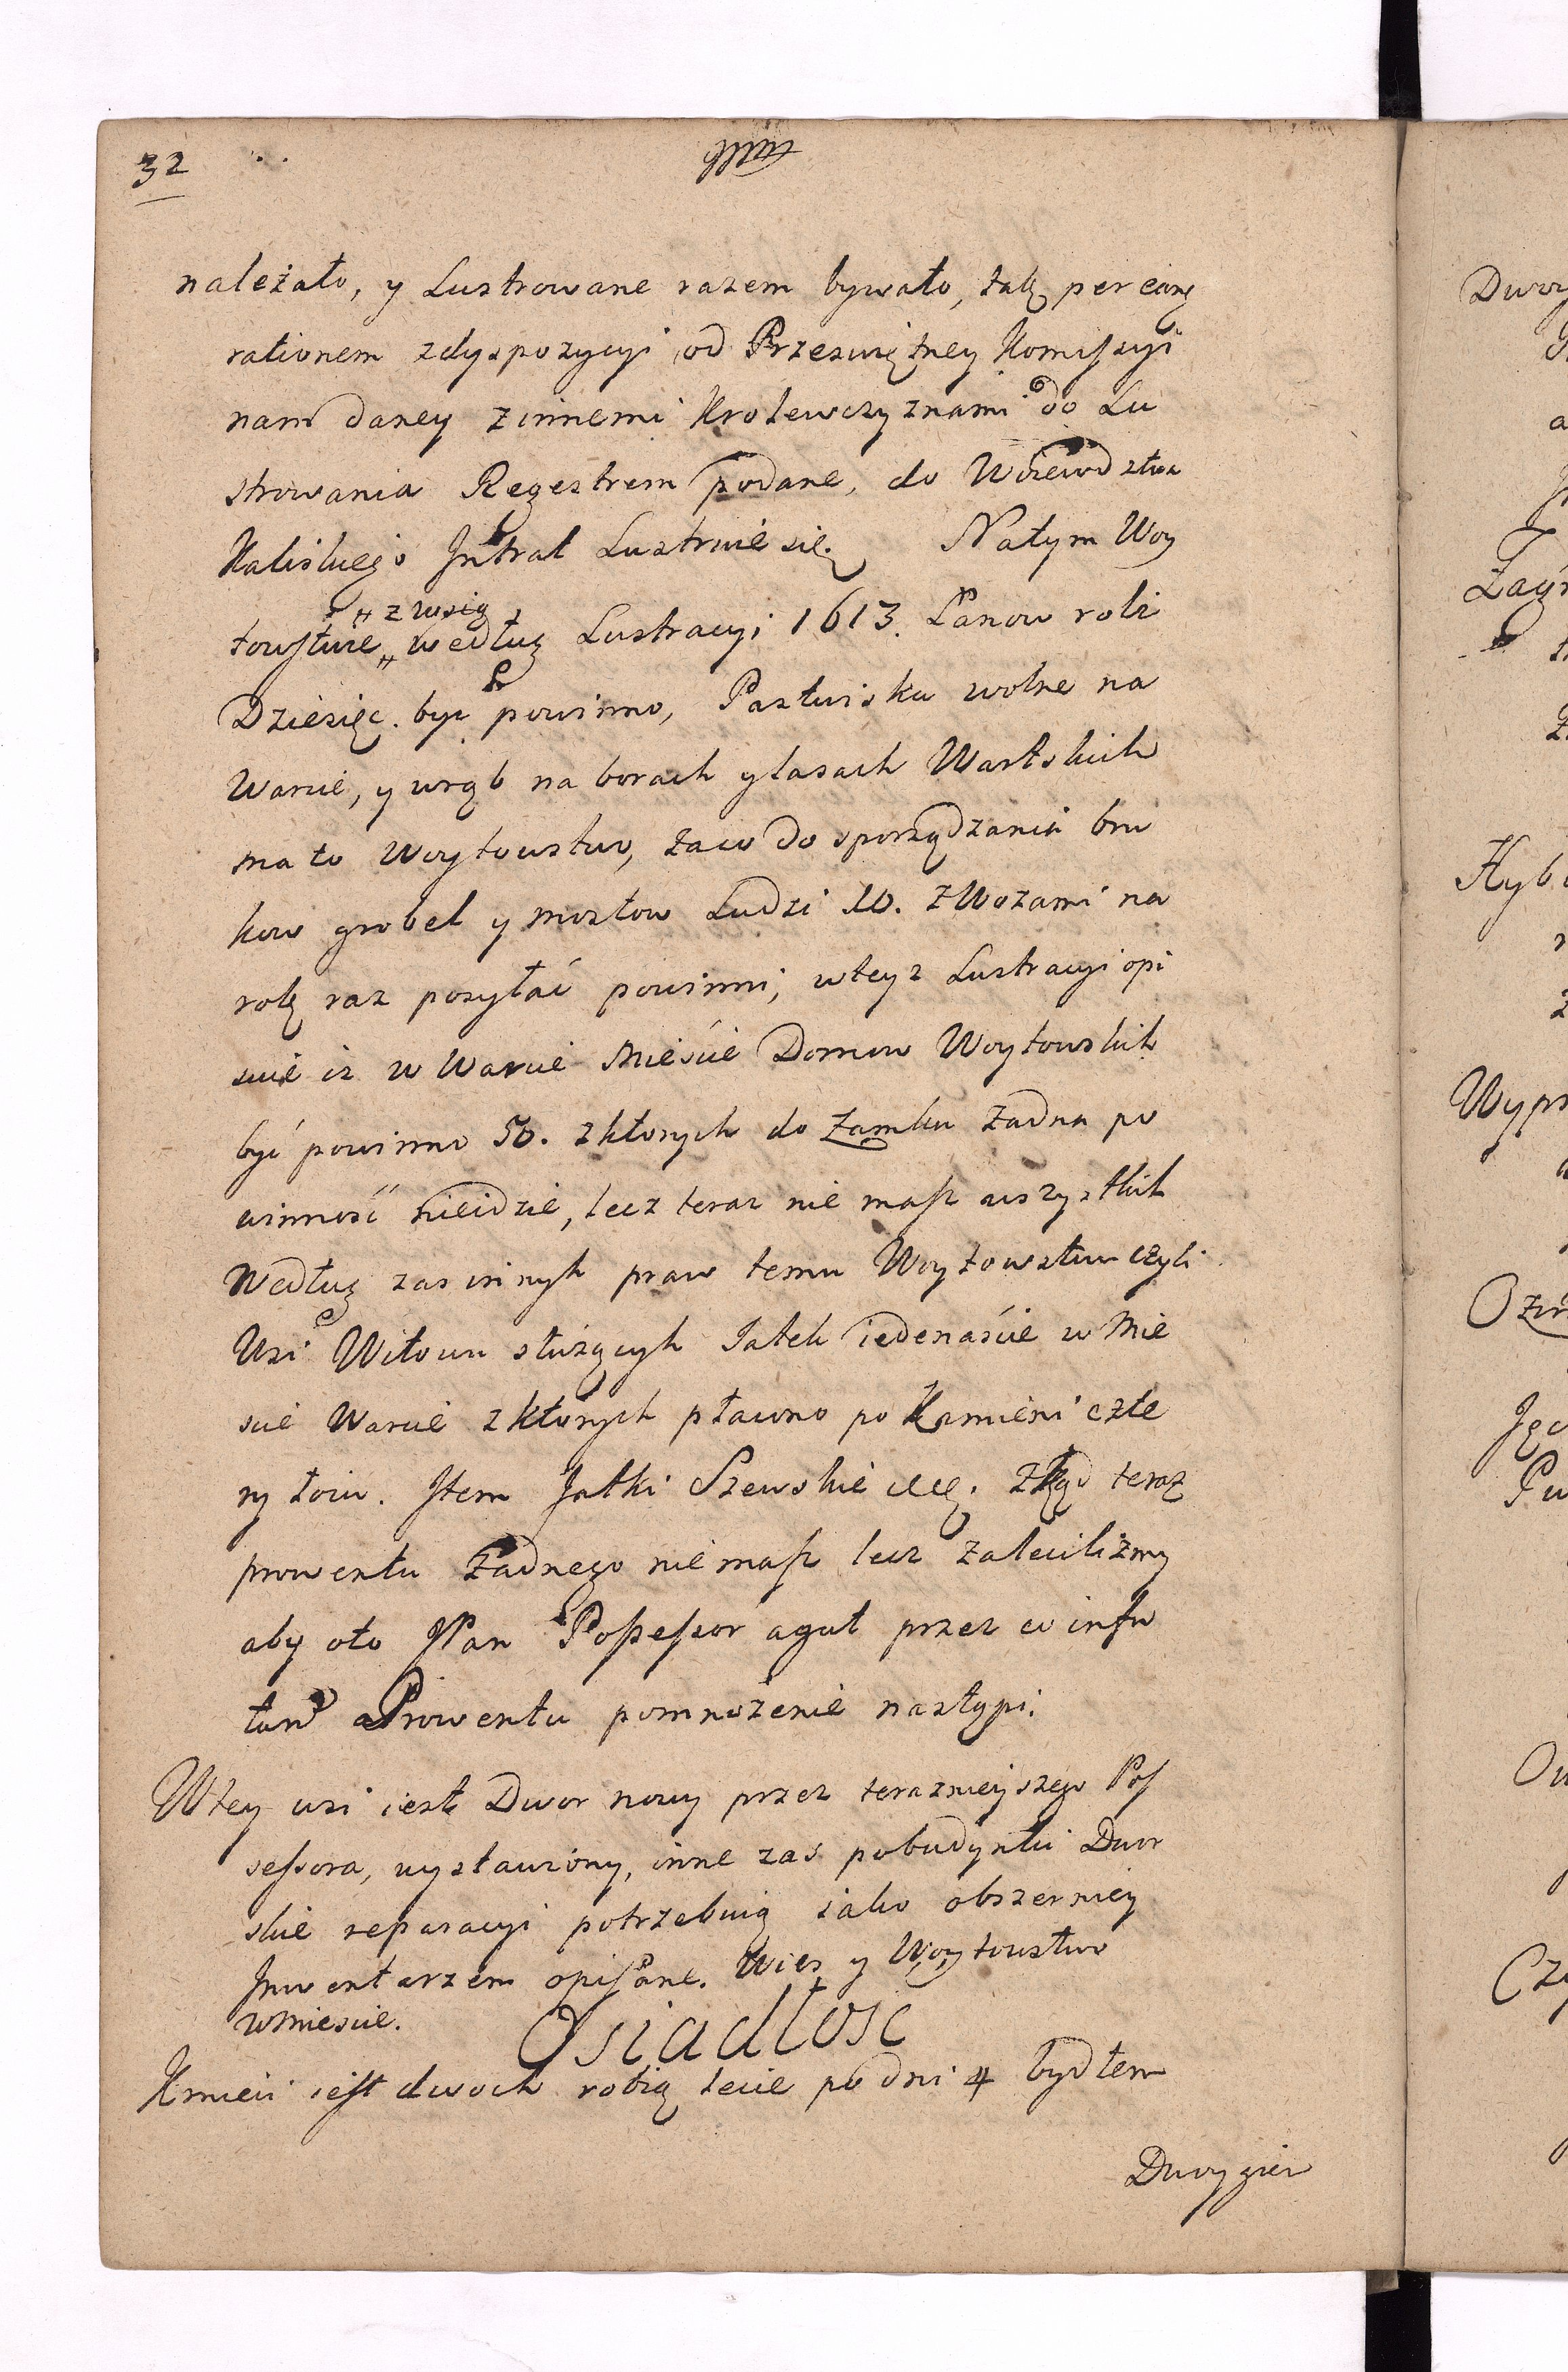 32
należało, y Lustrowane razem bywało, tak per eang
rationem zdyspozycyi od Przeswiętney Komissyi
nam daney zinnemi Krolewczyznami do Lu
strowania Regestrem podane, do Woiewodztwa
Kaliskiego Intrat Lustruie się. Natym Woy
"z wsią
towstwie " według Lustracyi 1613. Łanow roli
Dziesięc. być powinno, Pastwisku wolne na
Warcie, y wrąb na borach y lasach Wartskich
ma to Woytowstwo, zaco do sporządzania bru
kow grobel y mostow Ludzi 10. zWozami na
rok raz posyłać powinni, wteyz Lustracyi opi
suie iz w Warcie Mieście Domow Woytowskich
być powinno 50. zktorych do Zamku żadna po
winność nieidzie, lecz teraz nie masz wszystkich
Według zas innych praw temu Woytowstwu czyli
Wsi Witowu służących Jatek iedenaście w Mie
scie Warcie zktórych pławno po Kamieni czte
ry łoiu. Item Jatki Szewskie etc. zkąd teraz
prowentu żadnego niemasz lecz zaleciliżmy
aby oto JPan Possessor agut przez co in fu
turum Prowentu pomnożenie nastąpi.
Wtey wsi iest Dwor nowy przez teraznieyszego Pos
sessora, wystawiony, inne zas pobudynki Dwor
skie reparacyi potrzebuią iako obszerniey
Inwentarzem opisane. Wies y Woytowstwo
wMiescie.
Osiadłosc
Kmieci iest dwoch robią lecie po dni 4 bydłem
Dwoygier